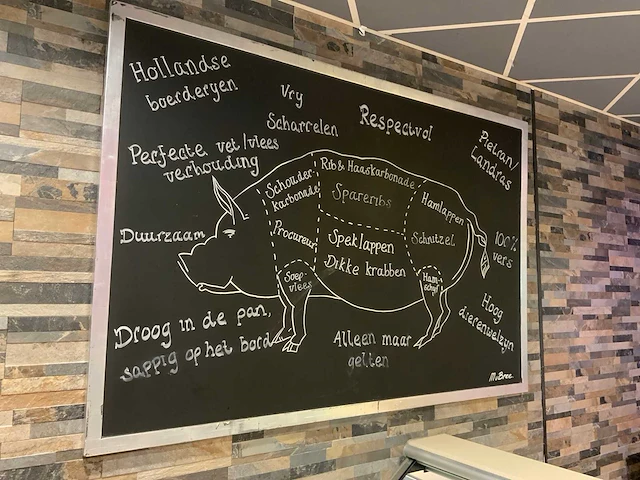 Hollandse
boerderyen
Vry
Scharrelen
Respectvol
Pietran/
Landras
Perfecte vet/vlees
verhouding
Duurzaam
Schouder
karbonade
Procureur
Soep-
vlees
Rib & Haaskarbonade
Spareribs
Speklappen
Dikke krabben
Hamlappen
Schnitzel
Ham-
schyf
100%
vers
Hoog
dierenwelzyn
Droog in de pan,
sappig op het bord
Alleen maar
gelten
M.vBree